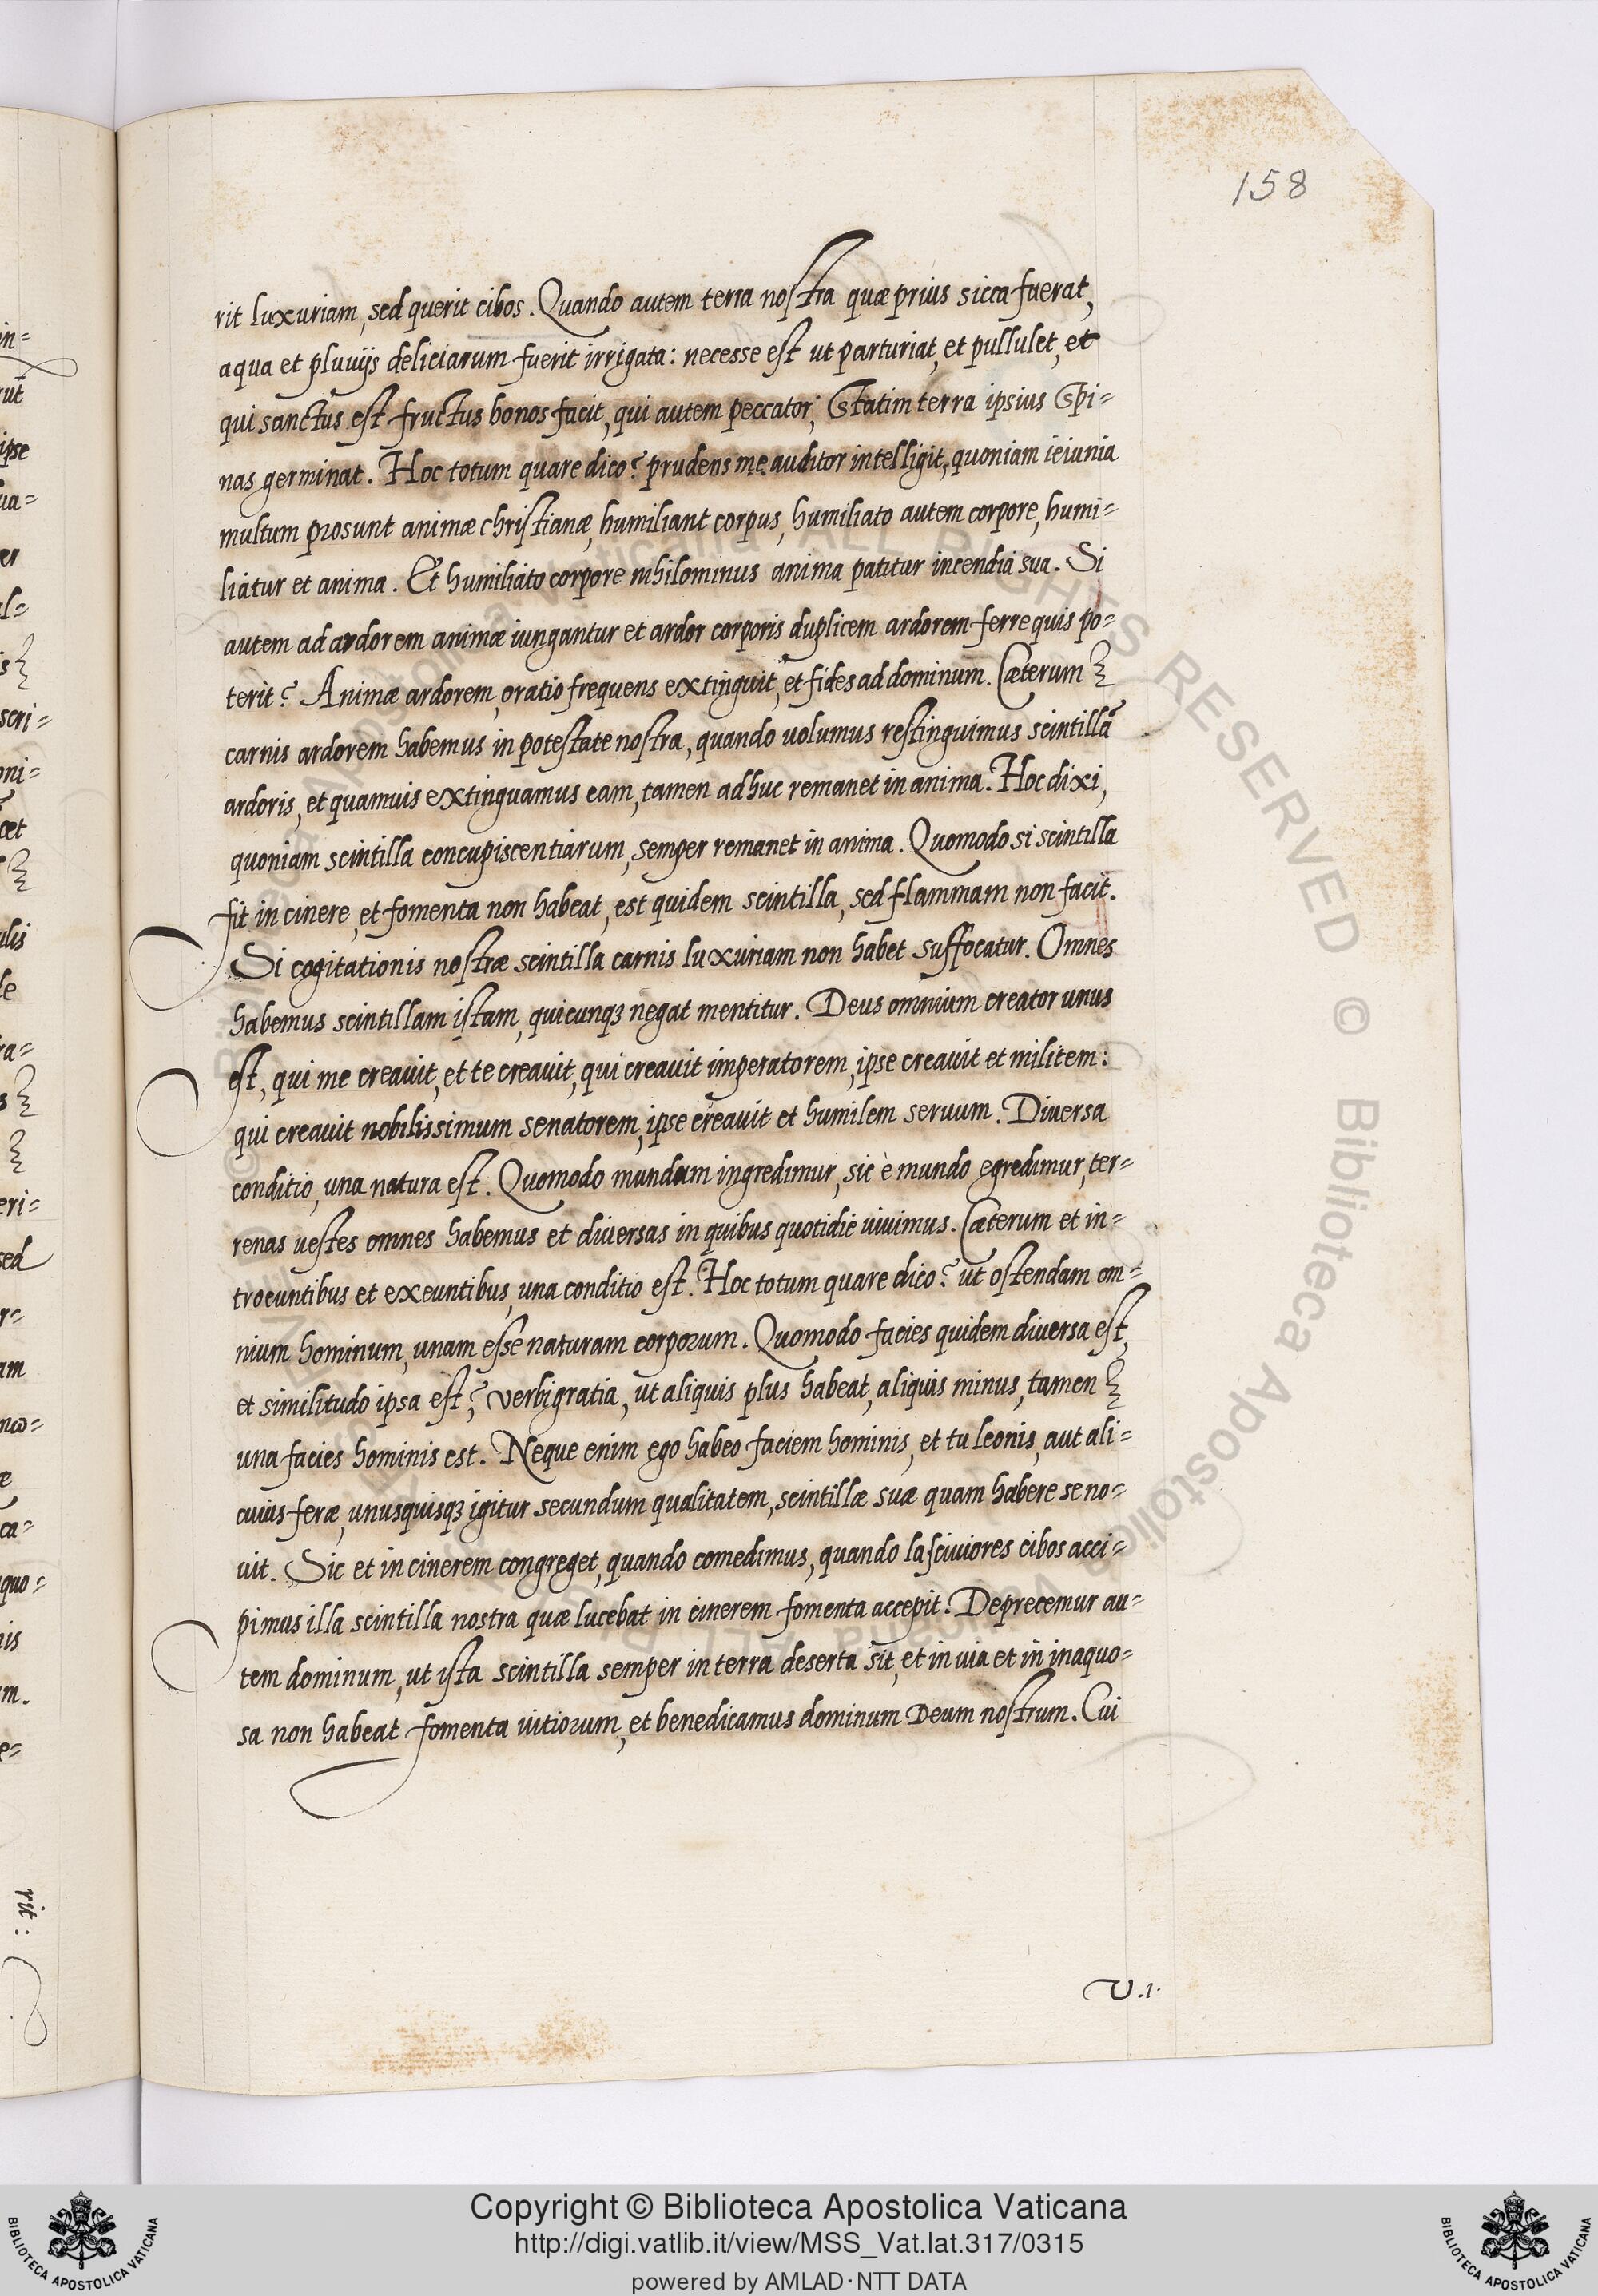 158
rit luxuriam, sed querit cibos. Quando autem terra nostra quæ prius sicca fuerat,
aqua et pluvijs deliciarum fuerit irrigata: necesse est ut parturiat, et pullulet, et
qui sanctus est fructus bonos facit, qui autem peccator; Statim terra ipsius Spi=
nas germinat. Hoc totum quare dico? prudens me auditor intelligit, quoniam ieiunia
multum prosunt animæ christianæ, humiliant corpus, humiliato autem corpore, humi=
liatur et anima. Et humiliato corpore nihilominus anima patitur incendia sua. Si
autem ad ardorem animæ iungantur et ardor corporis duplicem ardorem ferre quis po=
terit? Animæ ardorem, oratio frequens extinguit, et fides ad dominum. Cæterum
carnis ardorem habemus in potestate nostra, quando uolumus restinguimus scintillā
ardoris, et quamuis extinguamus eam, tamen adhuc remanet in anima. Hoc dixi,
quoniam scintilla concupiscentiarum, semper remanet in anima. Quomodo si scintilla
fit in cinere, et fomenta non habeat, est quidem scintilla, sed flammam non facit.
Si cogitationis nostræ scintilla carnis luxuriam non habet suffocatur. Omnes
habemus scintillam istam, quicunqꝫ negat mentitur. Deus omnium creator unus
est, qui me creauit, et te creauit, qui creauit imperatorem, ipse creauit et militem:
qui creauit nobilissimum senatorem, ipse creauit et humilem seruum. Diuersa
conditio, una natura est. Quomodo mundum ingredimur, sic è mundo egredimur, ter=
renas uestes omnes habemus et diuersas in quibus quotidie uiuimus. Cæterum et in=
troeuntibus et exeuntibus, una conditio est. Hoc totum quare dico? ut ostendam om=
nium hominum, unam esse naturam corporum. Quomodo facies quidem diuersa est,
et similitudo ipsa est; verbigratia, ut aliquis plus habeat, aliquis minus, tamen
una facies hominis est. Neque enim ego habeo faciem hominis, et tu leonis, aut ali=
cuius feræ, unusquisqꝫ igitur secundum qualitatem, scintillæ suæ quam habere se no=
uit. Sic et in cinerem congreget, quando comedimus, quando lasciuiores cibos acci=
pimus illa scintilla nostra quæ lucebat in cinerem fomenta accepit. Deprecemur au=
tem dominum, ut ista scintilla semper in terra deserta sit, et in uia et in inaquo=
sa non habeat fomenta uitiorum, et benedicamus dominum Deum nostrum. Cui
V.1.
rit:
© Biblioteca Apostolica Vaticana ALL RIGHTS RESERVED
Copyright © Biblioteca Apostolica Vaticana
http://digi.vatlib.it/view/MSS_Vat.lat.317/0315
powered by AMLAD·NTT DATA
BIBLIOTECA APOSTOLICA VATICANA
BIBLIOTECA APOSTOLICA VATICANA